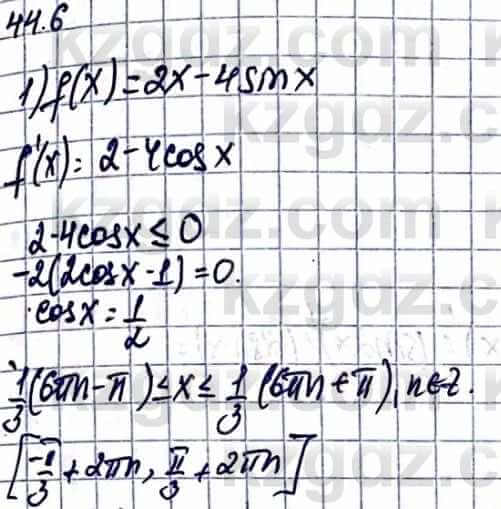 44.6
1) f(x) = 2x - 4sinx
f'(x): 2 - 4cosx
2-4cosx ≤ 0
-2(2cosx - 1) = 0.
cosx = 1/2
1/3 (6πn - π) ≤ x ≤ 1/3 (6πn + π), n∈Z.
[-π/3 + 2πn, π/3 + 2πn]
kzgdz.com